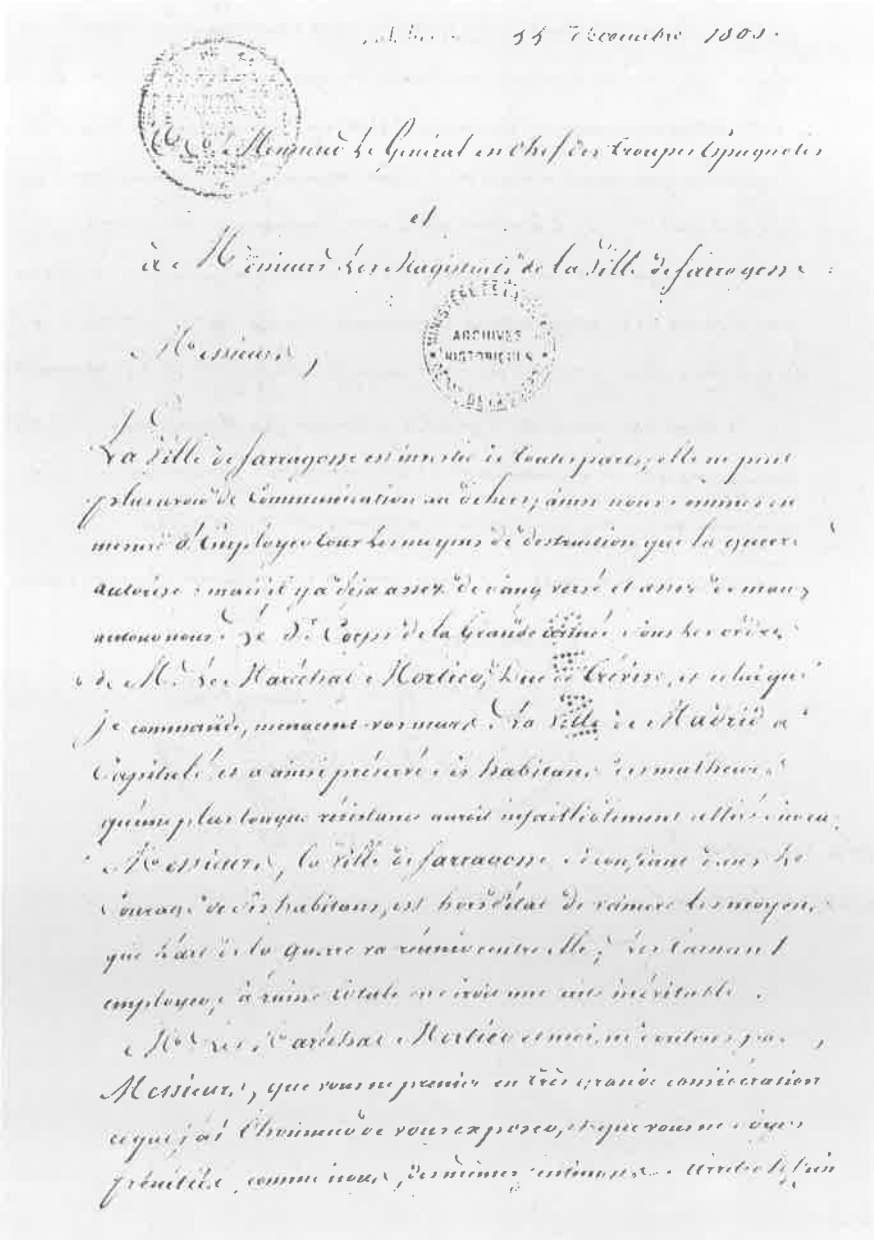 Décembre 1808.
Monsieur Le Général en Chef des troupes Espagnoles
et
à Messieurs Les Magistrats de la Ville de Sarragosse
MINISTÈRE DE LA GUERRE
ARCHIVES
HISTORIQUES
Messieurs,
La Ville de Sarragosse est investie de toutes parts; elle ne peut
plus avoir de Communication au dehors; ainsi nous sommes en
mesure d'Employer tous les moyens de destruction que la guerre
autorise: mais il y a déjà assez de sang versé et assez de maux
autour de nous. Le 5e Corps de la Grande armée sous les ordres
de Mr. Le Maréchal Mortier, Duc de Trévise, et celui que
je commande, menacent vos murs. La Ville de Madrid a
Capitulé et a ainsi préservé ses habitans des malheurs
qu'une plus longue résistance auroit infailliblement attiré
Messieurs, la Ville de Sarragosse confiante dans le
Courage de ses habitans, est hors d'état de vaincre les moyens
que l'art de la Guerre va réunir contre elle; Les
employer, sa ruine totale en inévitable.
Mr. Le Maréchal Mortier et moi, ne doutons pas,
Messieurs, que vous ne preniez en très grande considération
ce que j'ai l'honneur de vous exposer, et que vous ne soyez
pénétrés, comme nous, des mêmes sentimens. Arrêter